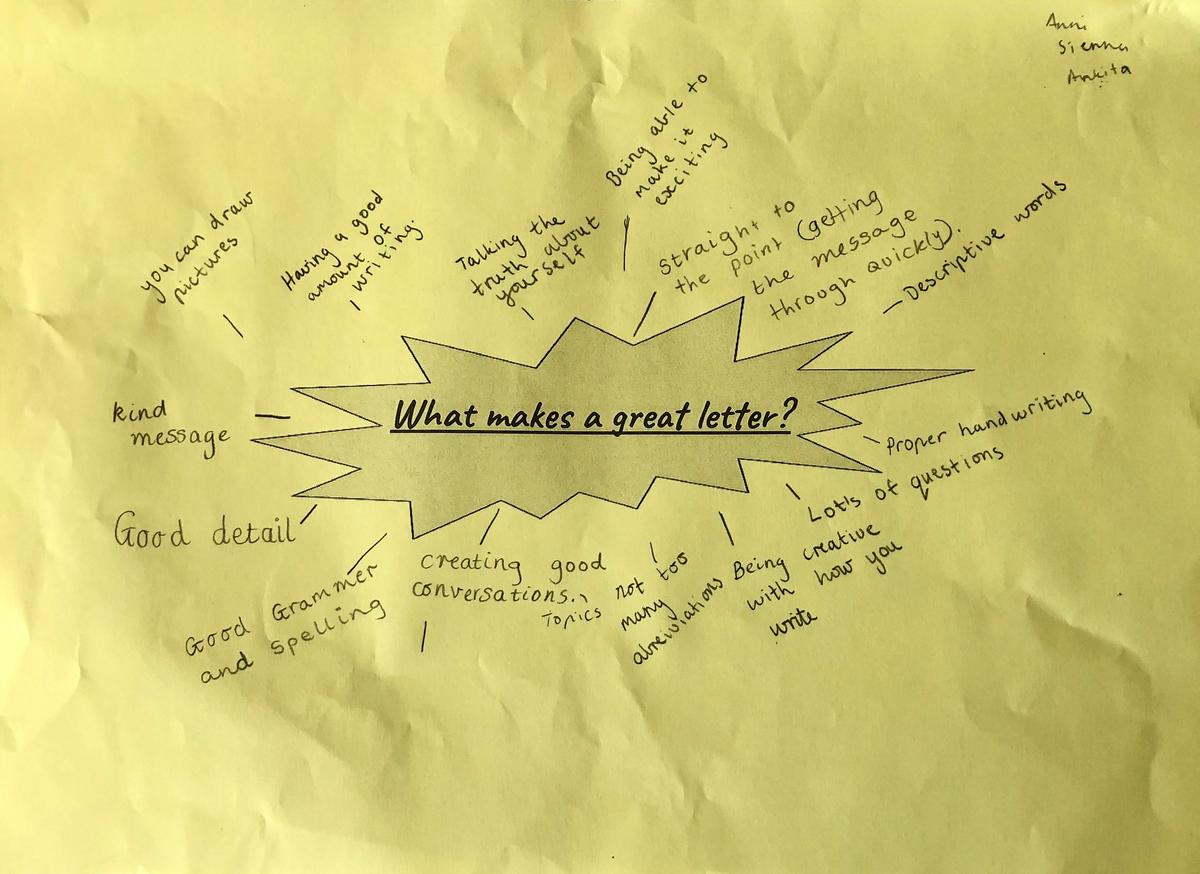 Anni
Sienna
Ankita
you can draw
pictures
Having a good
amount of
writing.
Talking the
truth about
yourself
Being able to
make it
exciting
straight to
the point (getting
the message
through quickly).
Descriptive words
What makes a great letter?
kind
message
Proper handwriting
Good detail
Lot's of questions
Good Grammer
and spelling
creating good
conversations.
Topics
not too
many
abreiviations
Being creative
with how you
write